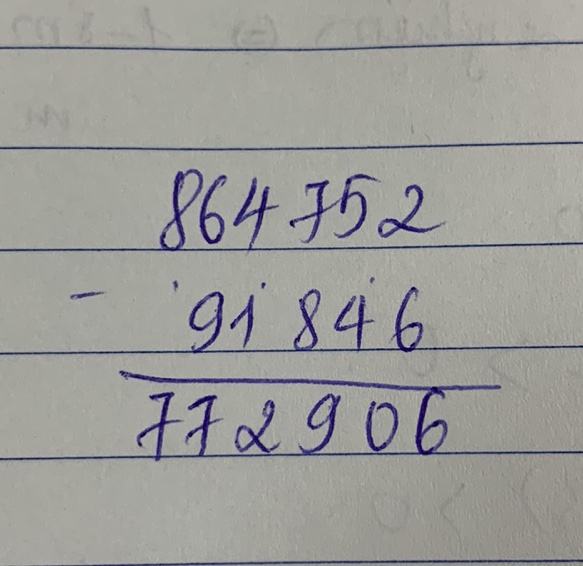 864752
- 91846
772906